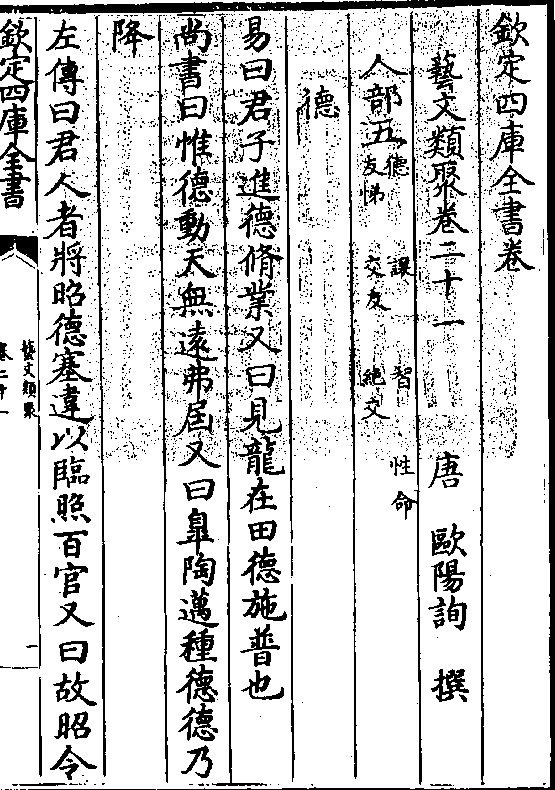 欽定四庫全書卷
藝文類聚卷二十一 唐 歐陽詢 撰
人部五 德 讓 智 性命 友悌 交友 絕交
德
易曰君子進德脩業又曰見龍在田德施普也
尚書曰惟德動天無遠弗屆又曰臯陶邁種德德乃
降
左傳曰君人者將昭德塞違以臨照百官又曰故昭令
欽定四庫全書
藝文類聚
卷二十一
一